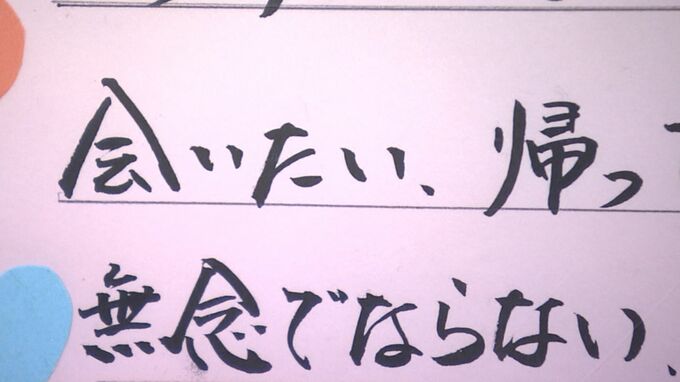 会いたい、帰っ
無念でならない、